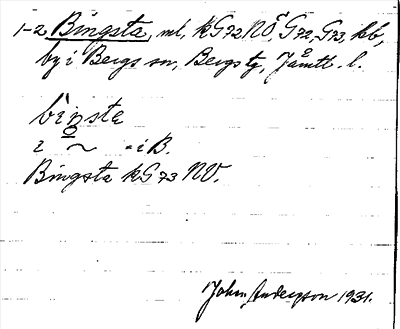 1-2 Bingsta, ml, kG72NÖ, G72, G73, kb,
by i Bergs sn, Bergs tg, Jämtl. l.
bìŋsta
i ~ - i B.
Bingsta kG73 NV.
John Anderson 1931.